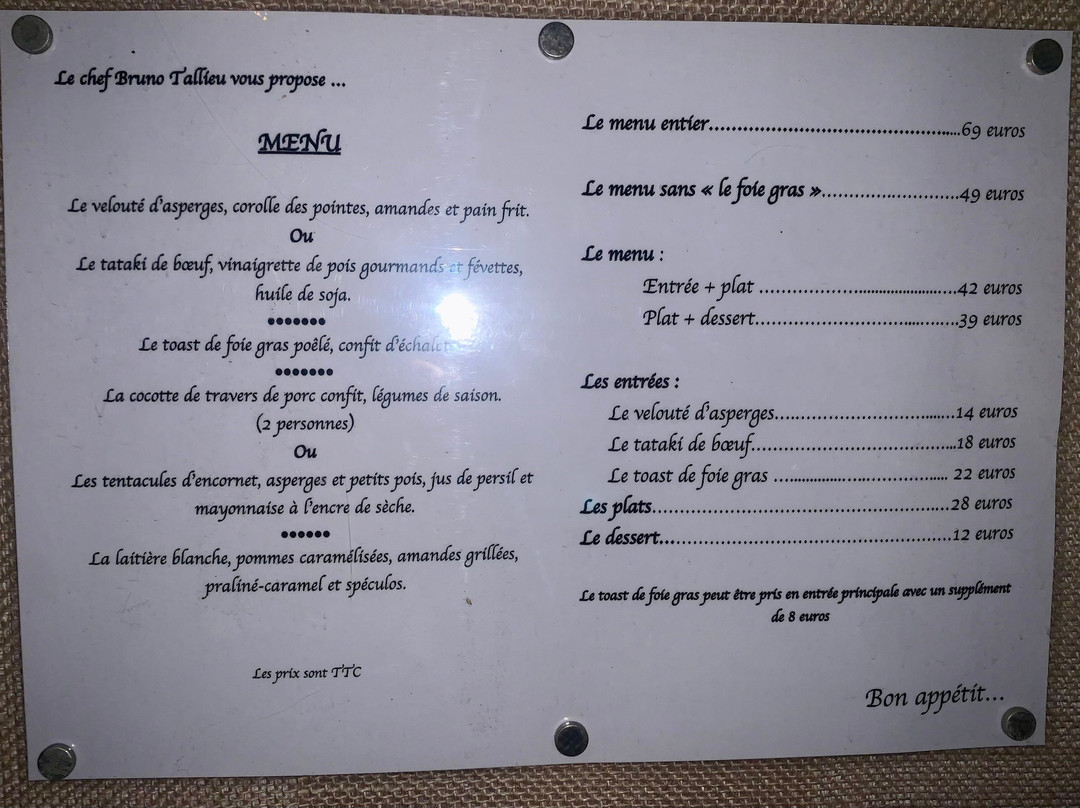 Le chef Bruno Tallieu vous propose ...
MENU
Le velouté d'asperges, corolle des pointes, amandes et pain frit.
Ou
Le tataki de bœuf, vinaigrette de pois gourmands et févettes,
huile de soja.
•••••••
Le toast de foie gras poêlé, confit
•••••••
La cocotte de travers de porc confit, légumes de saison.
(2 personnes)
Ou
Les tentacules d'encornet, asperges et petits pois, jus de persil et
mayonnaise à l'encre de sèche.
••••••
La laitière blanche, pommes caramélisées, amandes grillées,
praliné-caramel et spéculos.
Les prix sont TTC
Le menu entier..............................................69 euros
Le menu sans « le foie gras »..........................49 euros
Le menu :
Entrée + plat ......................................42 euros
Plat + dessert.......................................39 euros
Les entrées :
Le velouté d'asperges..................................14 euros
Le tataki de bœuf.......................................18 euros
Le toast de foie gras ................................. 22 euros
Les plats.......................................................28 euros
Le dessert.....................................................12 euros
Le toast de foie gras peut être pris en entrée principale avec un supplément
de 8 euros
Bon appétit...